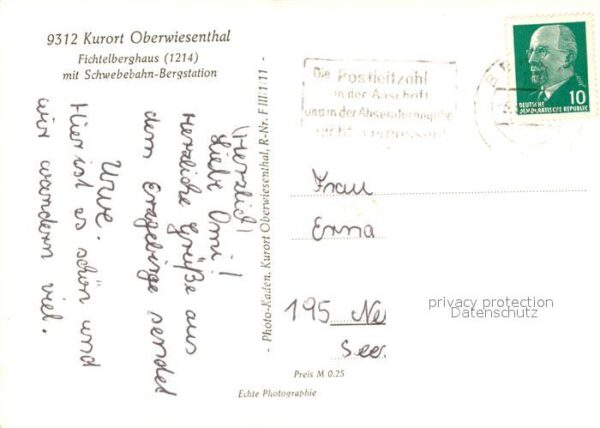 9312 Kurort Oberwiesenthal
Fichtelberghaus (1214)
mit Schwebebahn-Bergstation
(Herzlich)
Liebe Omi!
Herzliche Grüße aus
dem Erzgebirge sendet
Uwe.
Hier ist es schön und
wir wandern viel.
- Photo-Kaden, Kurort Oberwiesenthal, R-Nr. F III 1/11 -
Die Postleitzahl
in der Anschrift
und in der Absenderangabe
nicht vergessen
DEUTSCHE
DEMOKRATISCHE REPUBLIK
10
Frau
Erna
195 Ne
See
privacy protection
Datenschutz
Preis M 0.25
Echte Photographie